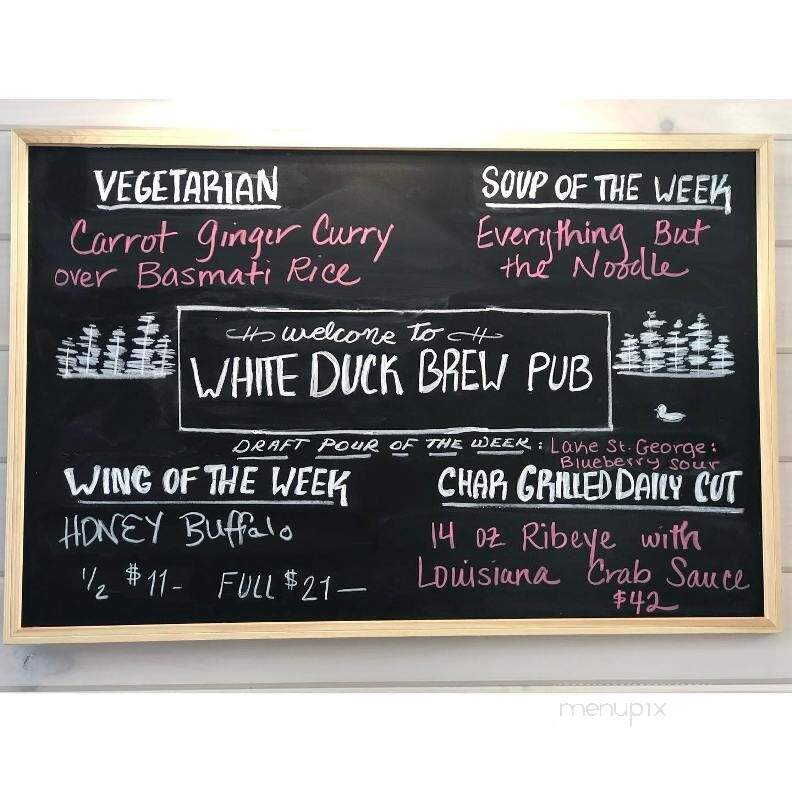 VEGETARIAN
Carrot Ginger Curry
over Basmati Rice
SOUP OF THE WEEK
Everything But
the Noodle
welcome to
WHITE DUCK BREW PUB
DRAFT POUR OF THE WEEK: Lake St. George:
Blueberry Sour
WING OF THE WEEK
HONEY Buffalo
1/2 $11- FULL $21—
CHAR GRILLED DAILY CUT
14 oz Ribeye with
Louisiana Crab Sauce
$42
menupix